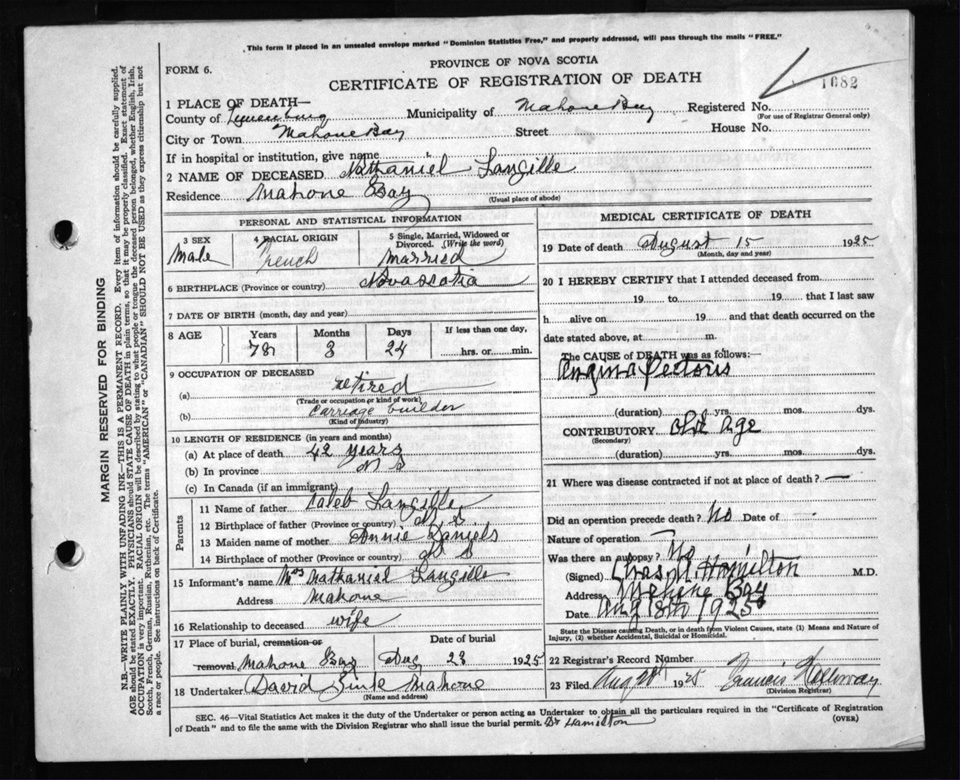 This form if placed in an unsealed envelope marked "Dominion Statistics Free," and properly addressed, will pass through the mails "FREE."
PROVINCE OF NOVA SCOTIA
FORM 6.
CERTIFICATE OF REGISTRATION OF DEATH
1682
1 PLACE OF DEATH—
County of Lunenburg Municipality of Mahone Bay Registered No.
(For use of Registrar General only)
City or Town Mahone Bay Street House No.
If in hospital or institution, give name
2 NAME OF DECEASED Nathaniel Langille
Residence Mahone Bay (Usual place of abode)
PERSONAL AND STATISTICAL INFORMATION
3 SEX 4 RACIAL ORIGIN 5 Single, Married, Widowed or Divorced. (Write the word)
Male French Married
6 BIRTHPLACE (Province or country) Nova scotia
7 DATE OF BIRTH (month, day and year)
8 AGE Years Months Days If less than one day,
78 3 24 hrs. or min.
9 OCCUPATION OF DECEASED
(a) retired
(Trade or occupation or kind of work)
(b) Carriage builder
(Kind of industry)
10 LENGTH OF RESIDENCE (in years and months)
(a) At place of death 42 years
(b) In province N S
(c) In Canada (if an immigrant)
Parents
11 Name of father Caleb Langille
12 Birthplace of father (Province or country) N. S.
13 Maiden name of mother Annie Daniels
14 Birthplace of mother (Province or country) N S
15 Informant's name Mrs Nathanial Langille
Address Mahone
16 Relationship to deceased wife
17 Place of burial, cremation or Date of burial
removal Mahone Bay Aug 1925
18 Undertaker David Zink Mahone
(Name and address)
MEDICAL CERTIFICATE OF DEATH
19 Date of death August 15 1925
(Month, day and year)
20 I HEREBY CERTIFY that I attended deceased from
19 to 19 that I last saw
h alive on 19 and that death occurred on the
date stated above, at m.
The CAUSE of DEATH was as follows:—
Angina Pectoris
(duration) yrs. mos. dys.
CONTRIBUTORY Old age
(Secondary)
(duration) yrs. mos. dys.
21 Where was disease contracted if not at place of death? —
Did an operation precede death? No Date of -
Nature of operation —
Was there an autopsy? No
(Signed) Hamilton M.D.
Address Mahone Bay
Date Aug 18th 1925
State the Disease causing Death, or in death from Violent Causes, state (1) Means and Nature of
Injury, (2) whether Accidental, Suicidal or Homicidal.
22 Registrar's Record Number
23 Filed Aug 1925 Francis
(Division Registrar)
SEC. 46—Vital Statistics Act makes it the duty of the Undertaker or person acting as Undertaker to obtain all the particulars required in the "Certificate of Registration
of Death" and to file the same with the Division Registrar who shall issue the burial permit. Dr Hamilton (OVER)
MARGIN RESERVED FOR BINDING
N.B.—WRITE PLAINLY WITH UNFADING INK—THIS IS A PERMANENT RECORD. Every item of information should be carefully supplied.
AGE should be stated EXACTLY. PHYSICIANS should STATE CAUSE OF DEATH in plain terms, so that it may be properly classified. Exact statement of
OCCUPATION is very important. RACIAL ORIGIN will be described by stating to what people or tongue the deceased person belonged, whether English, Irish,
Scotch, French, German, Russian, Ruthenian, etc. The terms "AMERICAN" or "CANADIAN" SHOULD NOT BE USED as they express citizenship but not
a race or people. See instructions on back of Certificate.